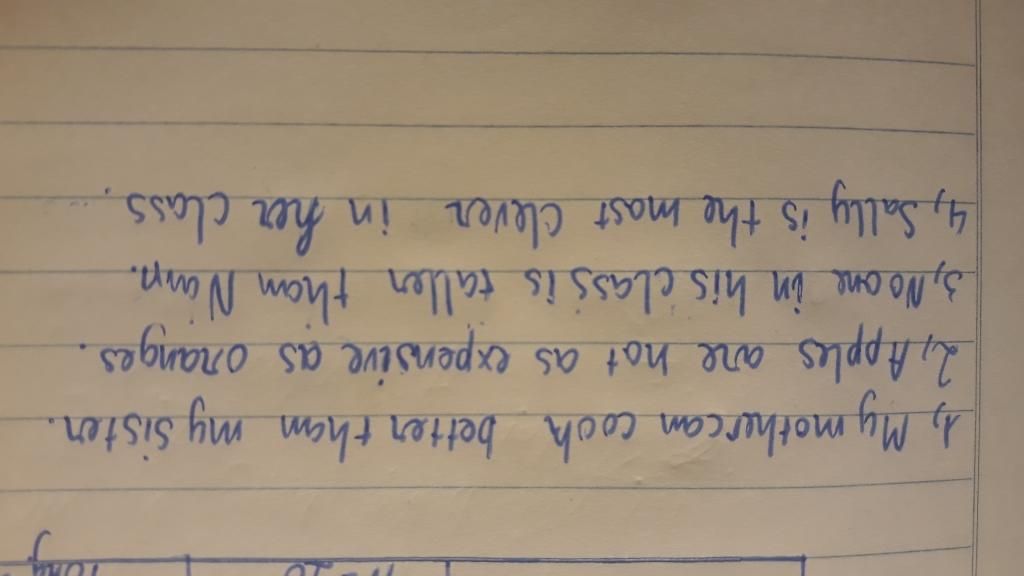 1, My mother can cook better than my sister.
2, Apples are not as expensive as oranges.
3, No one in his class is taller than Nam.
4, Sally is the most clever in her class.